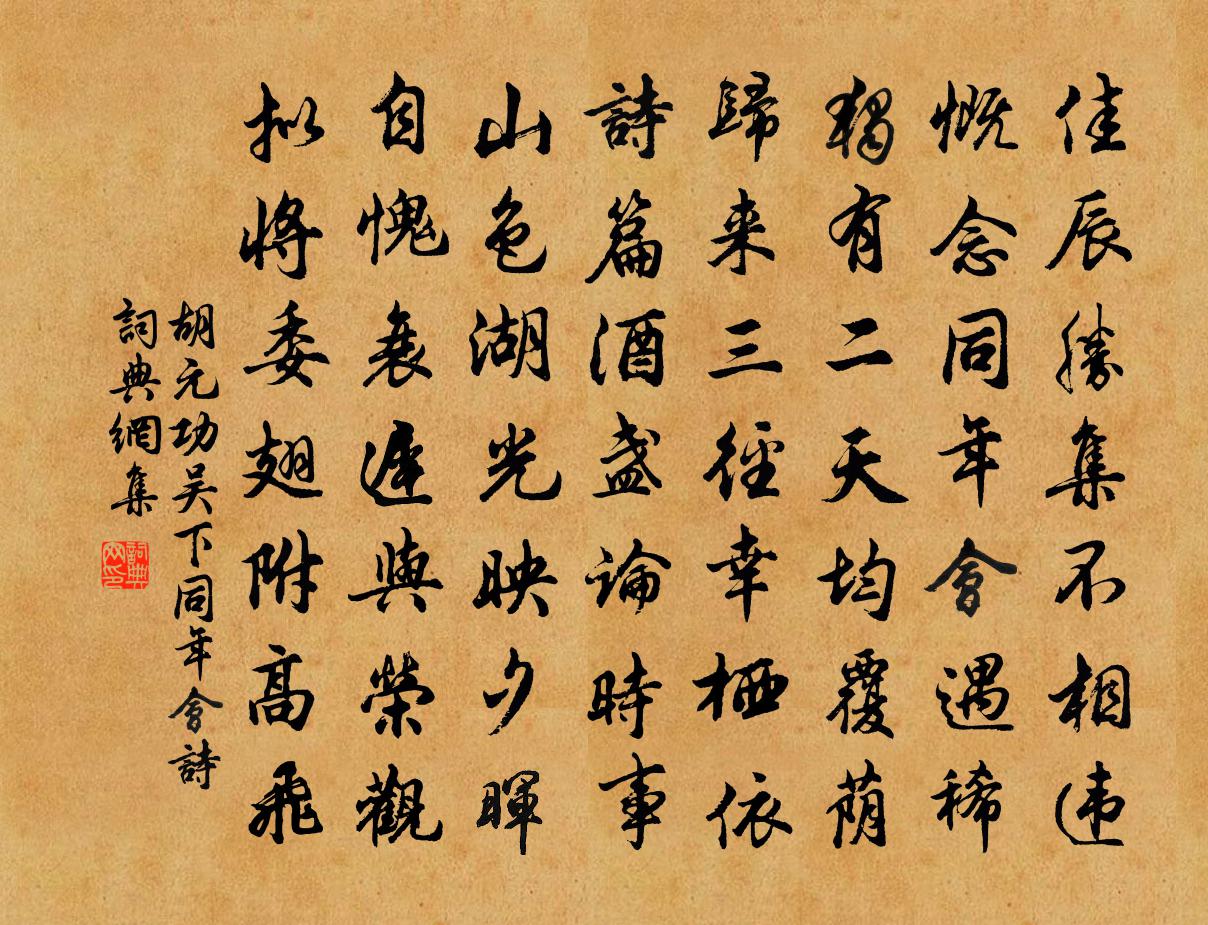 佳辰勝集不相违
慨念同年會遇稀
獨有二天均覆荫
歸来三徑幸栖依
詩篇酒盏論時事
山色湖光映夕暉
自愧衰遲與榮觀
拟將委翅附高飛
胡元功吴下同年會詩
詞典網集
詞典网印